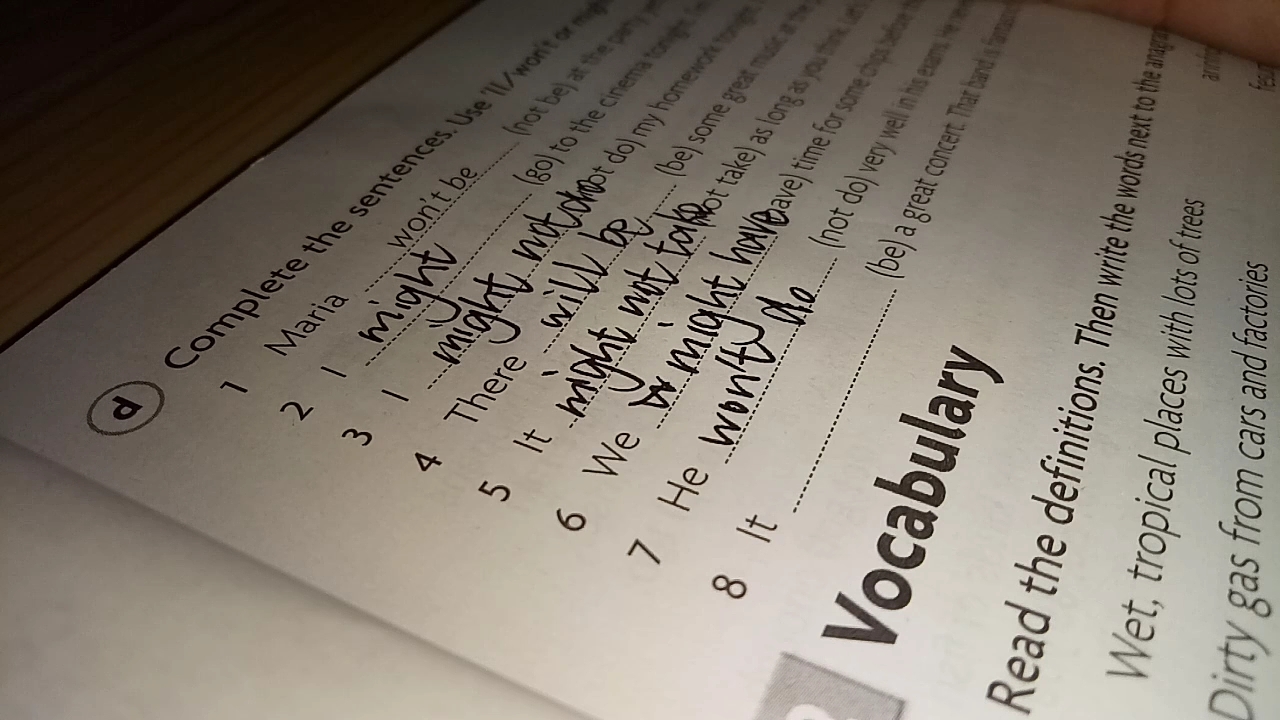 d Complete the sentences. Use 'll/won't or might
1 Maria won't be (not be) at the party
2 I might (go) to the cinema tonight.
3 I might not do not do) my homework tonight
4 There will be (be) some great music at the
5 It might not take not take) as long as you think. Let's
6 We might have ave) time for some chips before the
7 He won't do (not do) very well in his exams. He
8 It (be) a great concert. That band is fantastic
Vocabulary
Read the definitions. Then write the words next to the
Wet, tropical places with lots of trees
Dirty gas from cars and factories